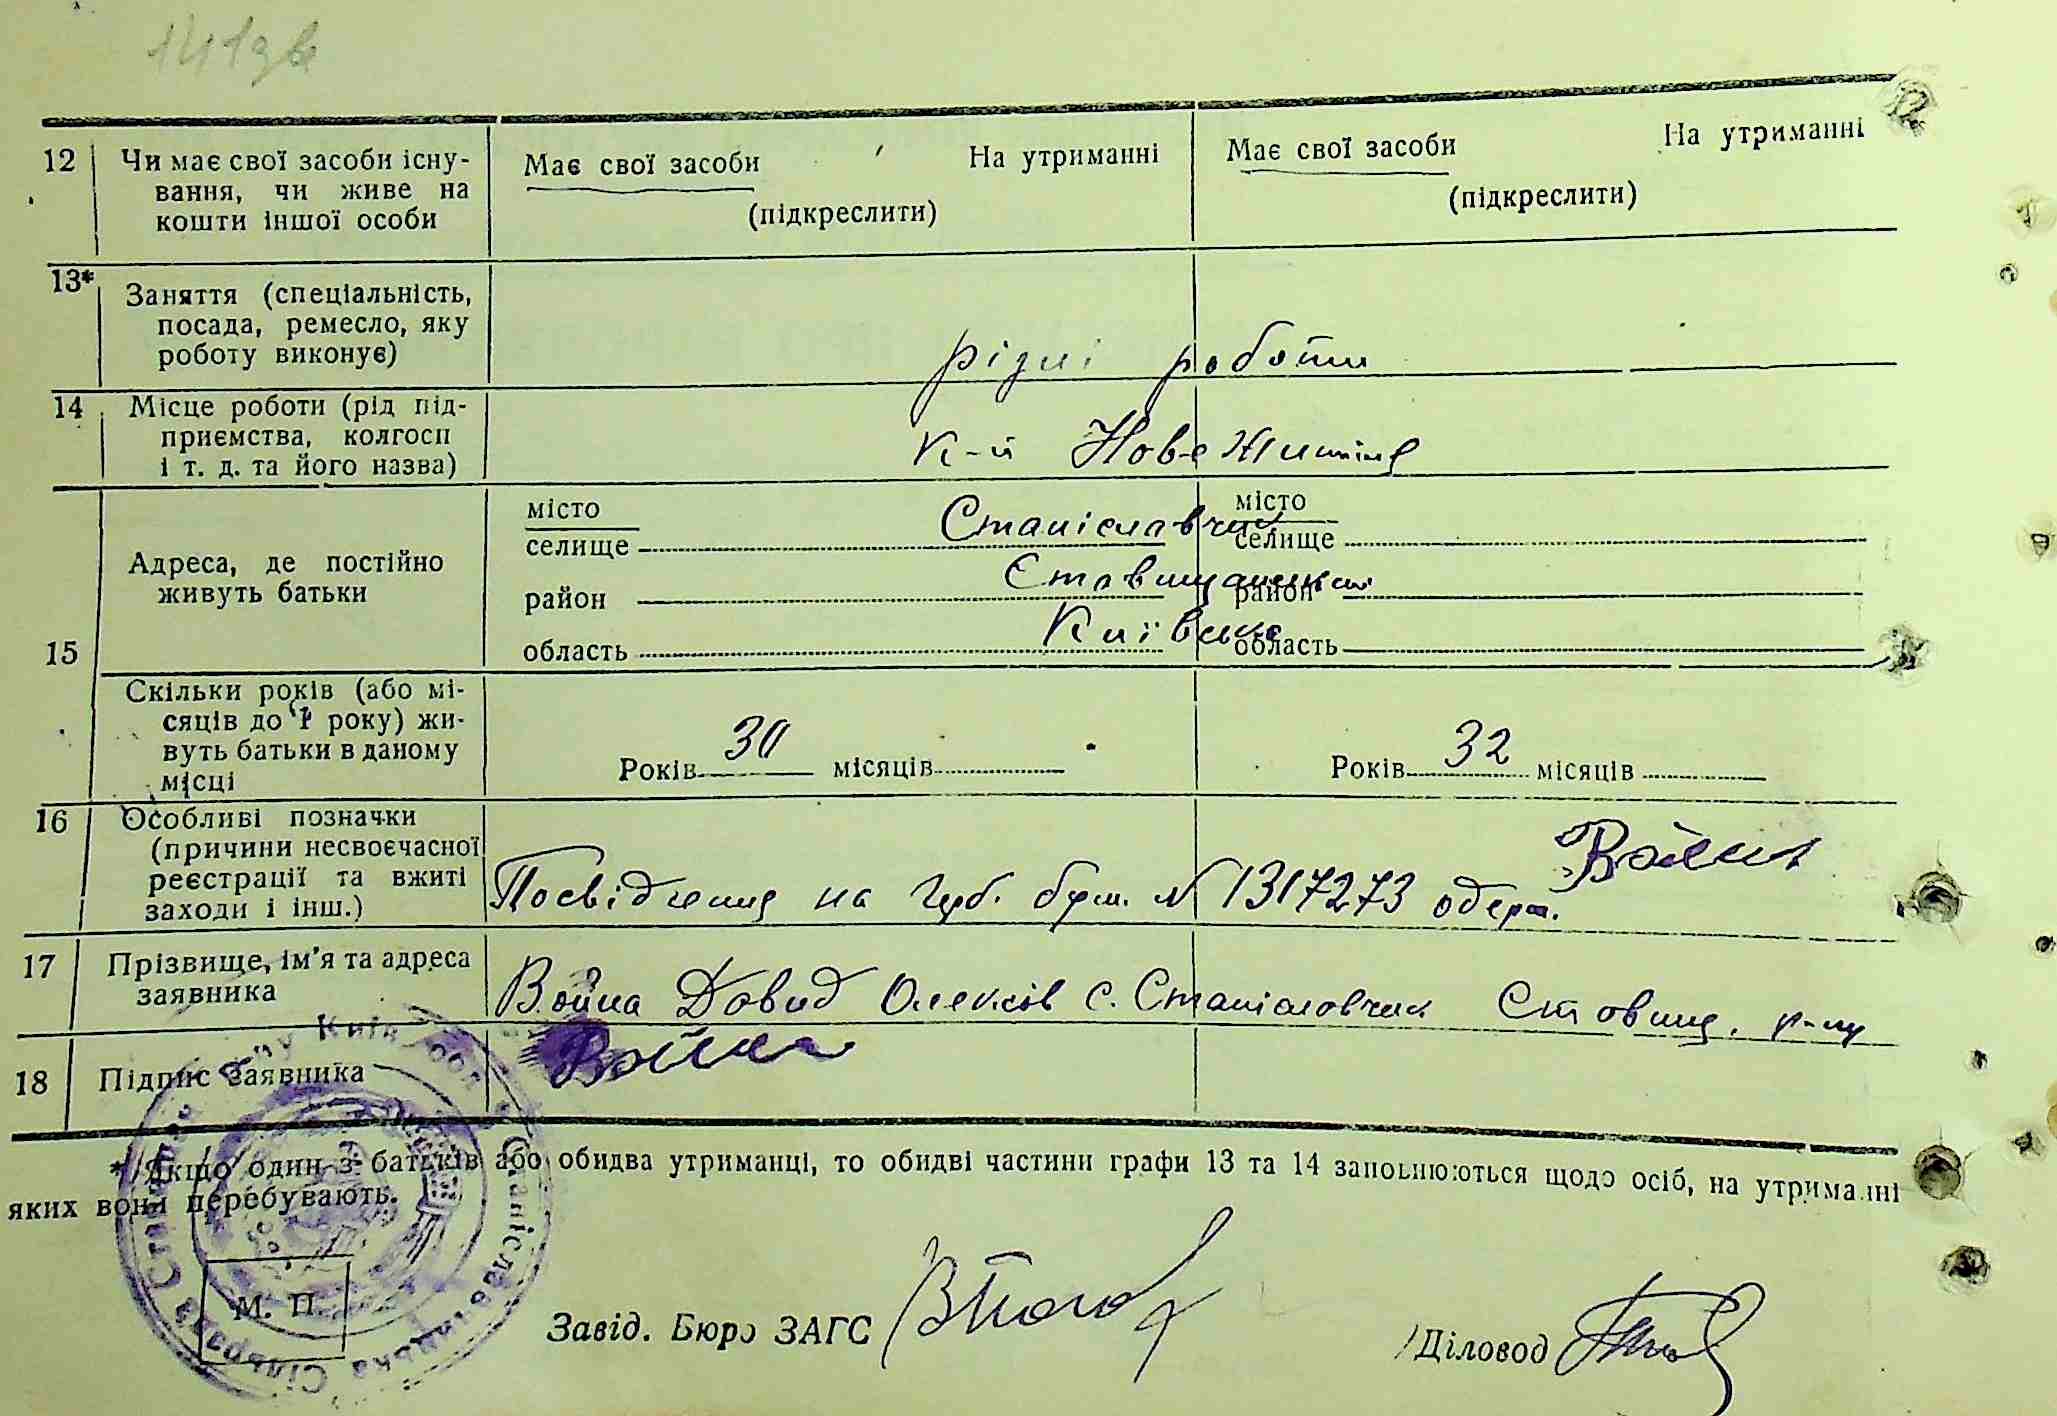 141зв
12 Чи має свої засоби існу-
вання, чи живе на
кошти іншої особи
Має свої засоби На утриманні
(підкреслити)
Має свої засоби На утриманні
(підкреслити)
13* Заняття (спеціальність,
посада, ремесло, яку
роботу виконує)
різні роботи
14 Місце роботи (рід під-
приємства, колгосп
і т. д. та його назва)
К-п Нове Життя
15
Адреса, де постійно
живуть батьки
місто
селище Станіславчик
район Ставищанський
область Київська
місто
селище
район
область
Скільки років (або мі-
сяців до 1 року) жи-
вуть батьки в даному
місці
Років 30 місяців
Років 32 місяців
16 Особливі позначки
(причини несвоєчасної
реєстрації та вжиті
заходи і інш.)
Посвідчення на N 1317273 одерж.
Война
17 Прізвище, ім'я та адреса
заявника
Война Довид Олексів с. Станіславчик Ставищ. р-ну
18 Підпис заявника
Война
* Якщо один з батьків або обидва утриманці, то обидві частини графи 13 та 14 заповнюються щодо осіб, на утриманні
яких вони перебувають.
М. П.
Станіславчицька Сільрада
Завід. Бюро ЗАГС
Діловод